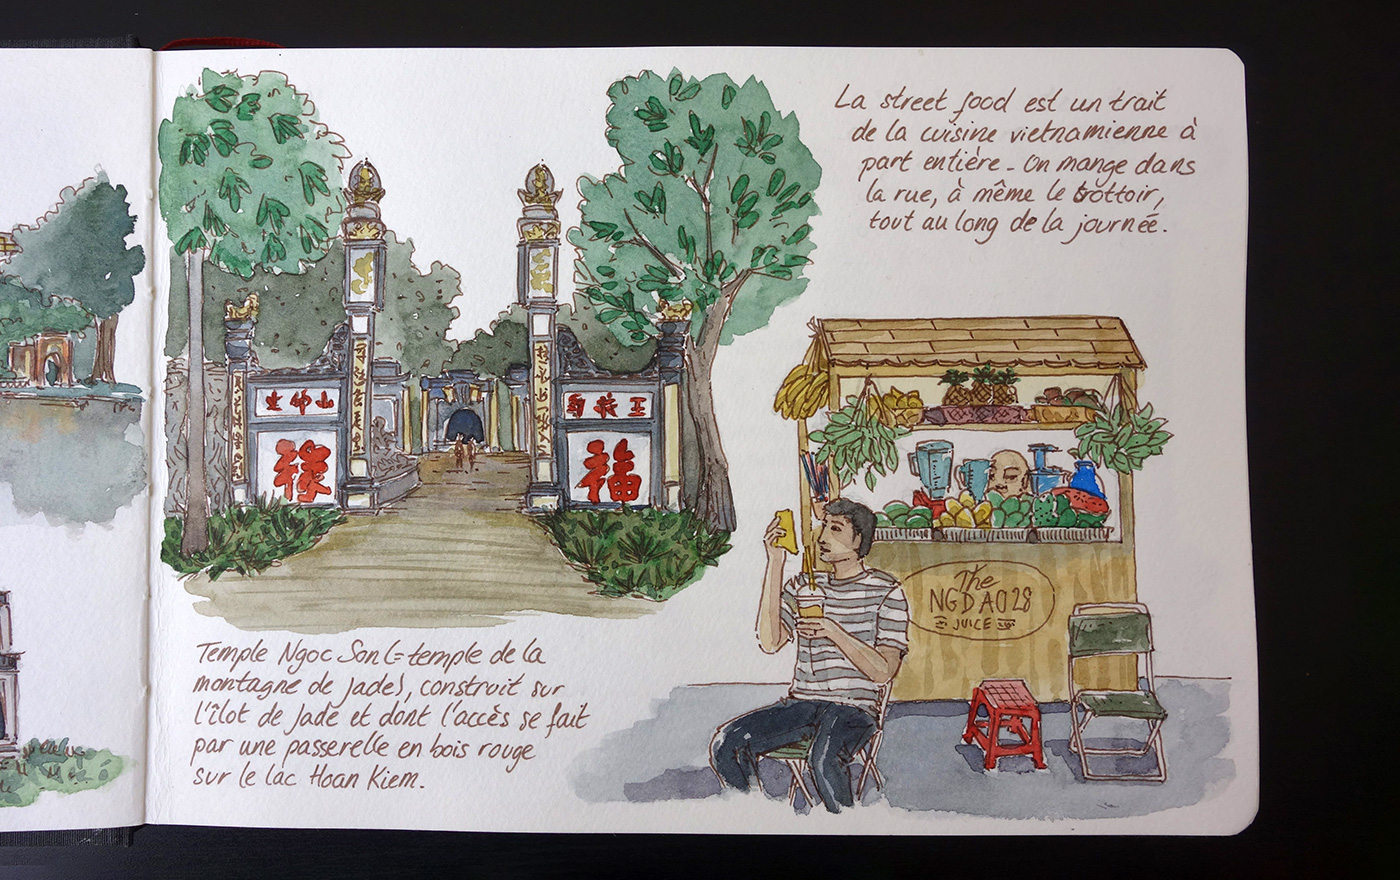 La street food est un trait
de la cuisine vietnamienne à
part entière - On mange dans
la rue, à même le trottoir,
tout au long de la journée.
山仰
玉
祿
福
The
NGDAO28
JUICE
Temple Ngoc Son (= temple de la
montagne de Jade), construit sur
l'îlot de Jade et dont l'accès se fait
par une passerelle en bois rouge
sur le lac Hoan Kiem.